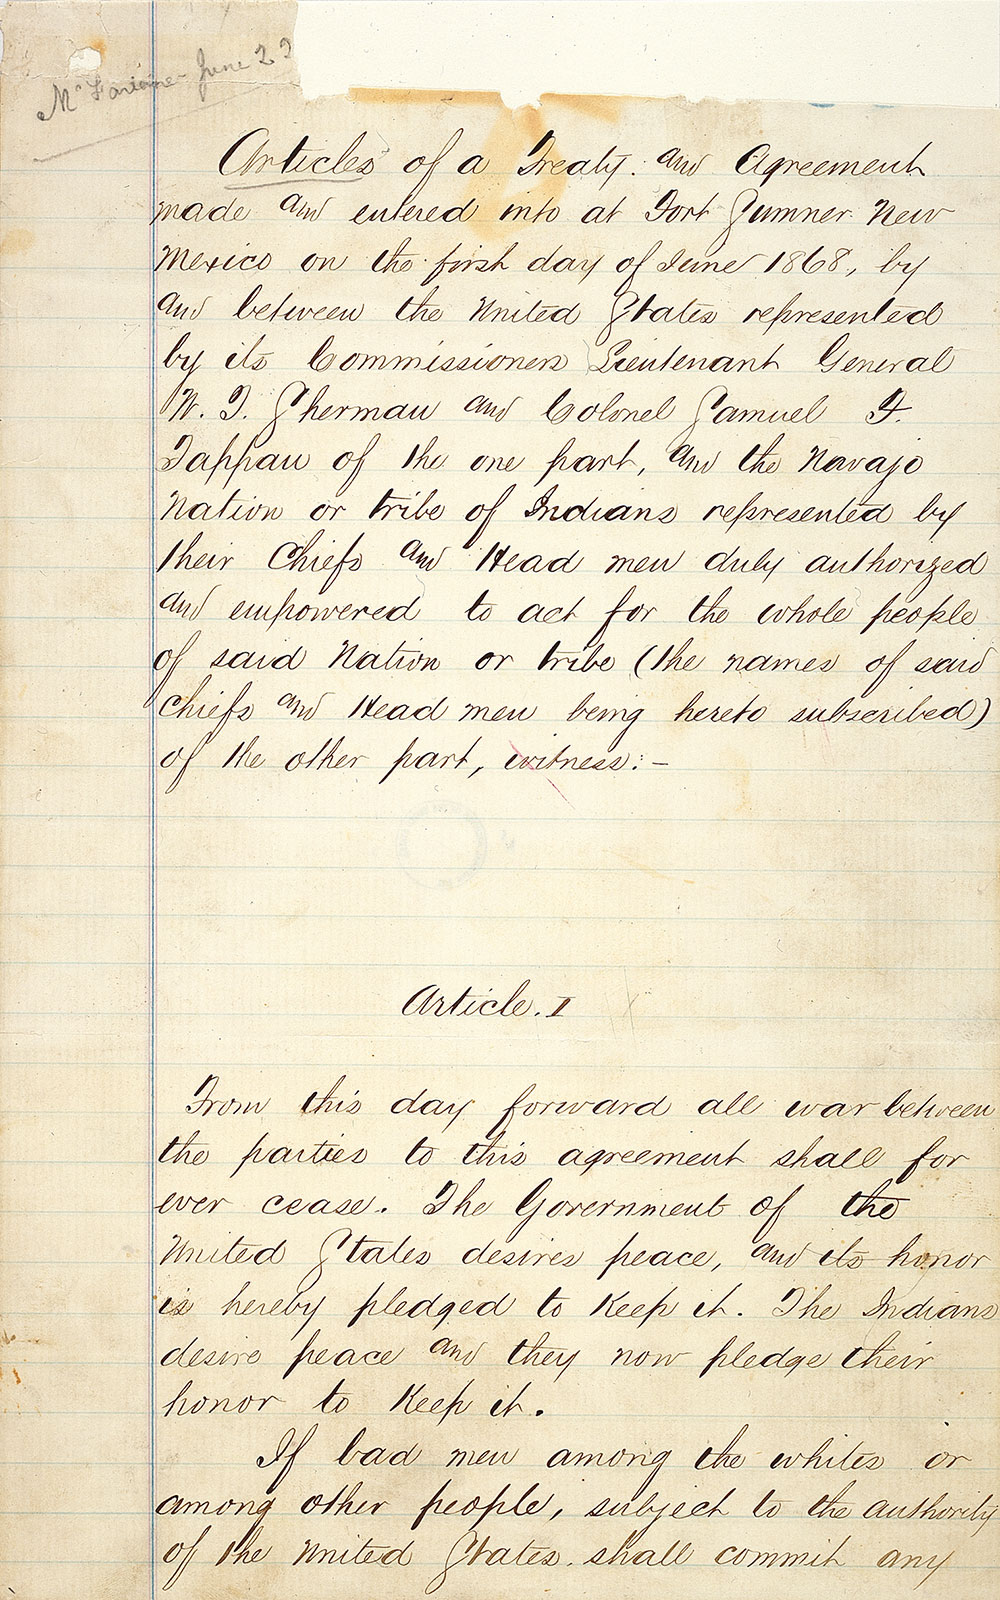 June 23
Articles of a Treaty. and Agreement
made and entered into at Fort Sumner New
Mexico on the first day of June 1868, by
and between the United States represented
by its Commissioners Lieutenant General
W. T. Sherman and Colonel Samuel F.
Tappan of the one part, and the Navajo
Nation or tribe of Indians represented by
their Chiefs and Head men duly authorized
and empowered to act for the whole people
of said Nation or tribe (the names of said
Chiefs and Head men being hereto subscribed)
of the other part, witness:-
Article. I
From this day forward all war between
the parties to this agreement shall for
ever cease. The Government of the
United States desires peace, and its honor
is hereby pledged to keep it. The Indians
desire peace and they now pledge their
honor to keep it.
If bad men among the whites or
among other people, subject to the authority
of the United States. shall commit any